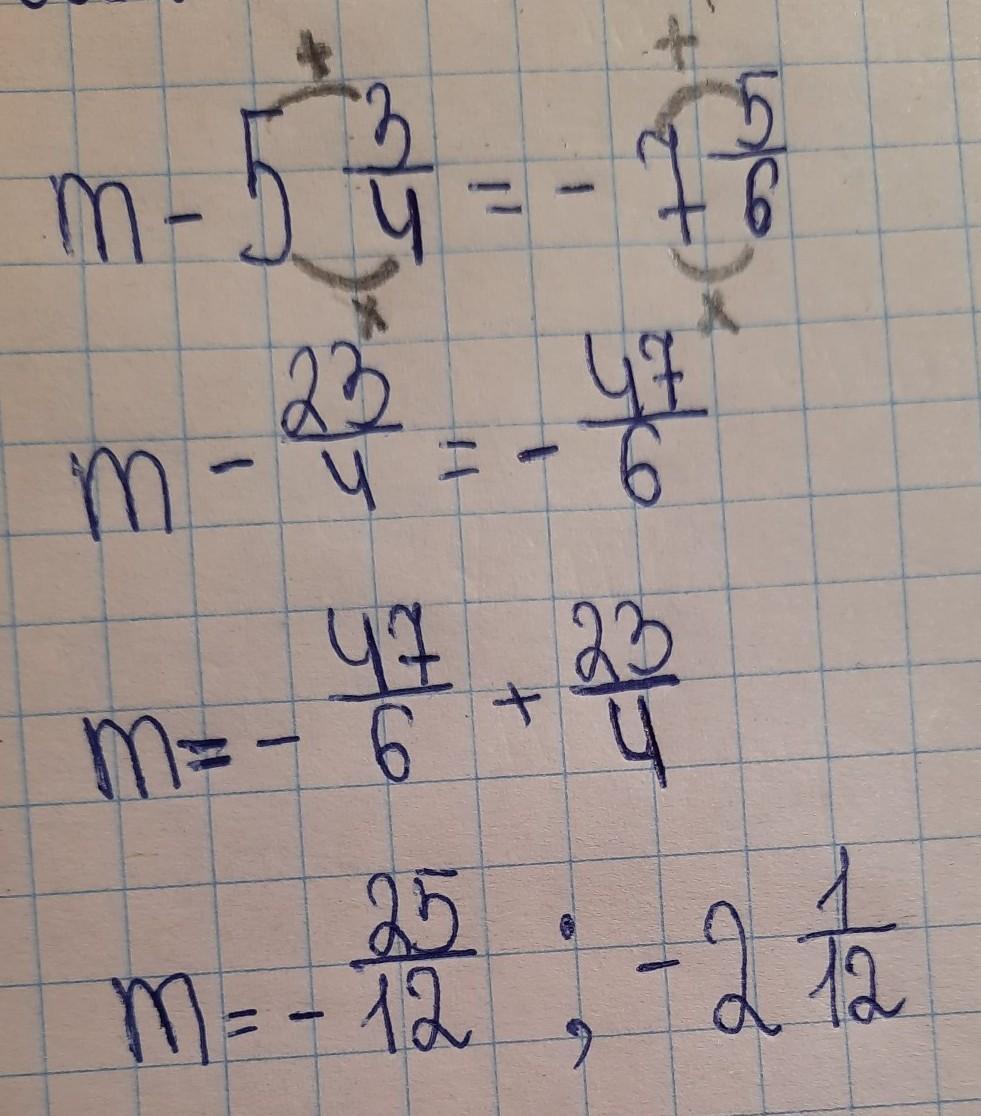 m - 5 3/4 = - 7 5/6
m - 23/4 = - 47/6
m = - 47/6 + 23/4
m = - 25/12 ; - 2 1/12